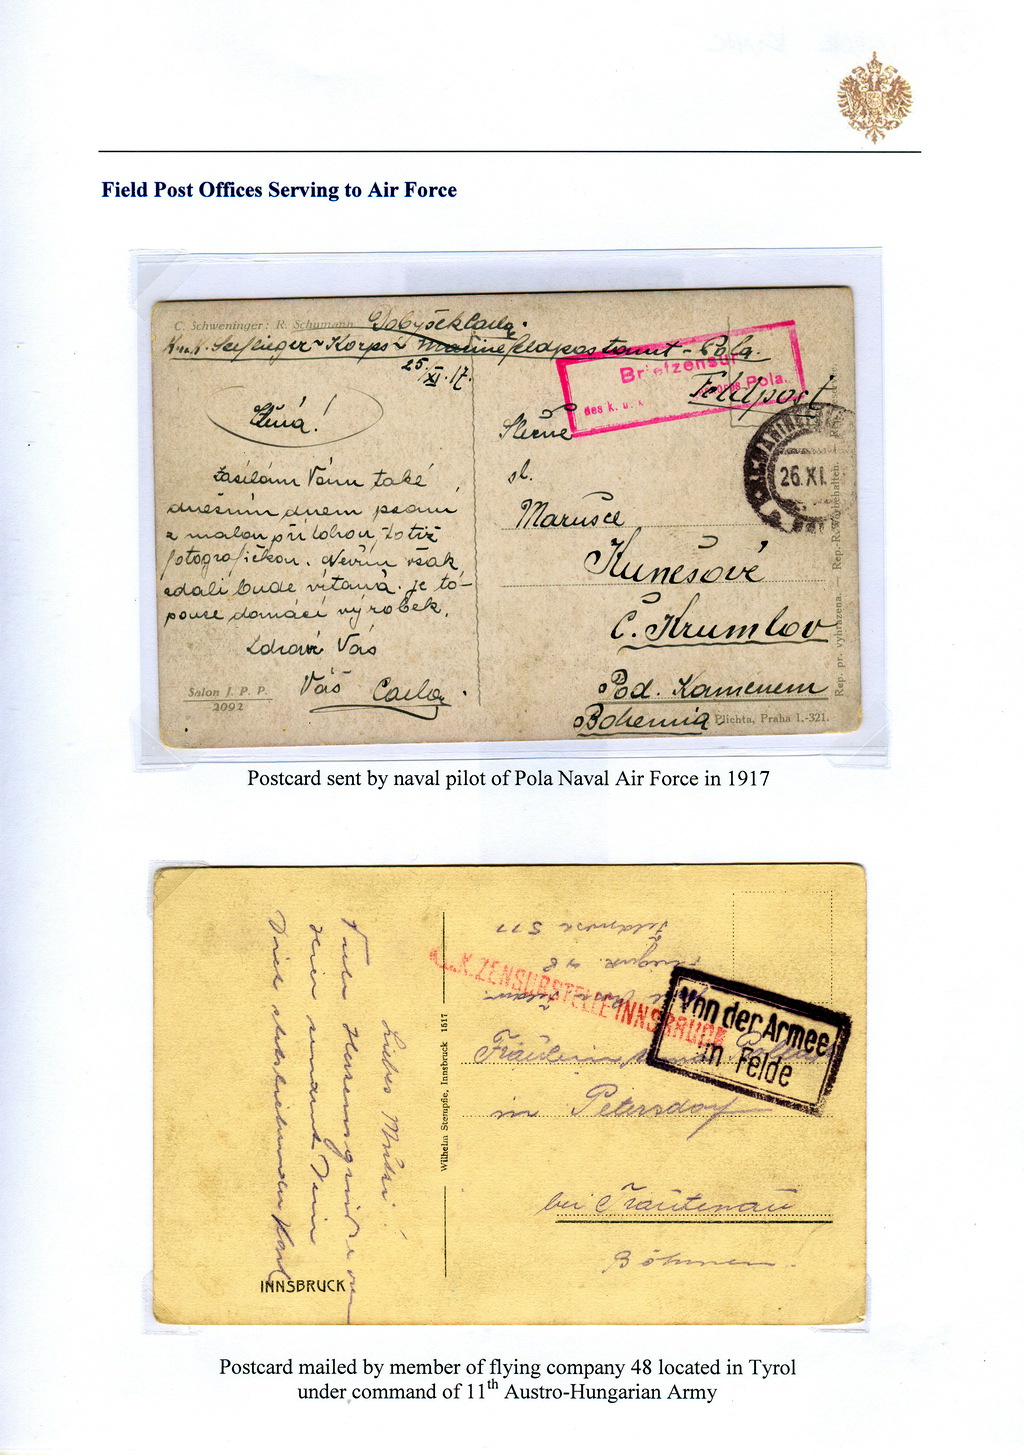 Field Post Offices Serving to Air Force
C. Schweninger: R. Schumann
K.u.K. Seeflieger-Korps Marinefeldpostamt - Pola.
25/XI. 17.
Briefzensur
des k. u. k. Pola.
Feldpost
26.XI.
Slečně
sl.
Marusce
Kunešové
Č. Krumlov
Pod. Kamenem
Bohemia
Zasílám Vám také
dnešním dnem psaní
z malou přílohou totiž
fotografičkou. Nevím však
zdali bude vítaná. je to-
pouze domácí výrobek.
Zdraví Vás
Váš Carla.
Salon J. P. P.
2092
Plichta, Praha I.-321.
Rep. pr. vyhrazena. — Rep.-R. Vorbehalten.
Postcard sent by naval pilot of Pola Naval Air Force in 1917
Feldpost 511
K.K. ZENSURSTELLE INNSBRUCK
Von der Armee
im Felde
Fräulein
in Petersdorf
bei Trautenau
Böhmen.
Wilhelm Stempfle, Innsbruck 1517
Liebes
Viele
INNSBRUCK
Postcard mailed by member of flying company 48 located in Tyrol
under command of 11th Austro-Hungarian Army